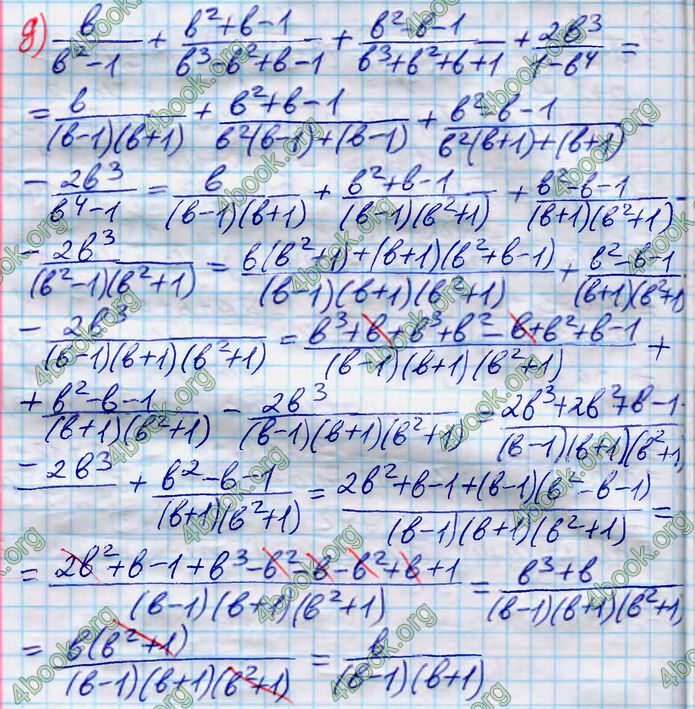 д) b/(b²-1) + (b²+b-1)/(b³-b²+b-1) + (b²-b-1)/(b³+b²+b+1) + 2b³/(1-b⁴) =
= b/((b-1)(b+1)) + (b²+b-1)/(b²(b-1)+(b-1)) + (b²-b-1)/(b²(b+1)+(b+1)) -
- 2b³/(b⁴-1) = b/((b-1)(b+1)) + (b²+b-1)/((b-1)(b²+1)) + (b²-b-1)/((b+1)(b²+1)) -
- 2b³/((b²-1)(b²+1)) = (b(b²+1)+(b+1)(b²+b-1))/((b-1)(b+1)(b²+1)) + (b²-b-1)/((b+1)(b²+1))
- 2b³/((b-1)(b+1)(b²+1)) = (b³+b+b³+b²-b+b²+b-1)/((b-1)(b+1)(b²+1)) +
+ (b²-b-1)/((b+1)(b²+1)) - 2b³/((b-1)(b+1)(b²+1)) = (2b³+2b²+b-1)/((b-1)(b+1)(b²+1))
- 2b³ + (b²-b-1)/((b+1)(b²+1)) = (2b²+b-1+(b-1)(b²-b-1))/((b-1)(b+1)(b²+1)) =
= (2b²+b-1+b³-b²-b-b²+b+1)/((b-1)(b+1)(b²+1)) = (b³+b)/((b-1)(b+1)(b²+1))
= b(b²+1)/((b-1)(b+1)(b²+1)) = b/((b-1)(b+1))
4book.org